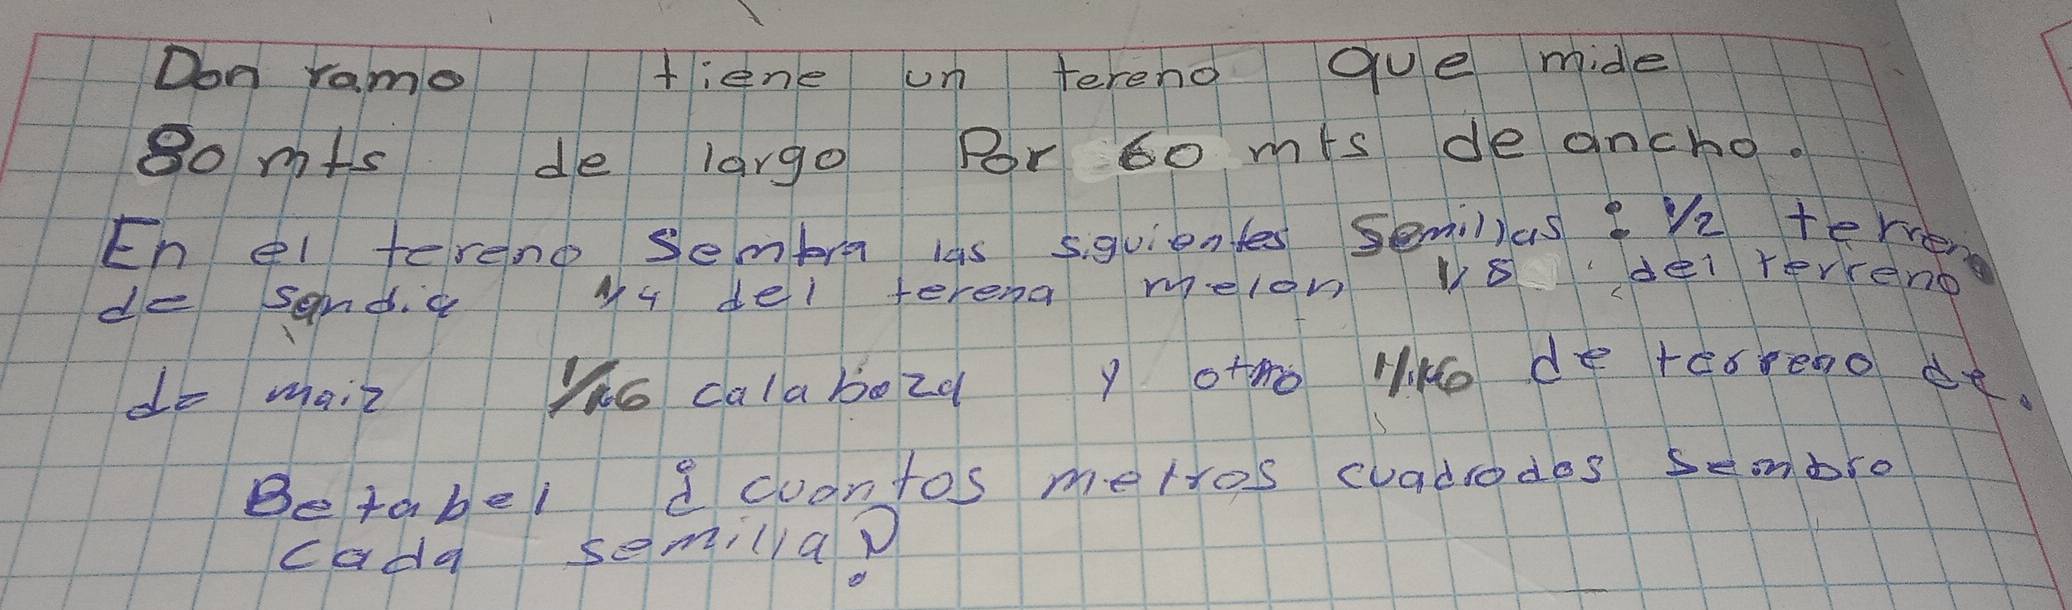 Don ramo tiene un tereno que mide
80 mts de largo Por 60 mts de ancho.
En el tereno sembra las siguientes Semillas : 1/2 terreno
de sandia 1/4 del terena melon 1/8 del terreno
de maiz 1/16 calaboza y otro 1/16 de terreno de.
Betabel ¿ cuantos metros cuadrados sembro
cada semilla?